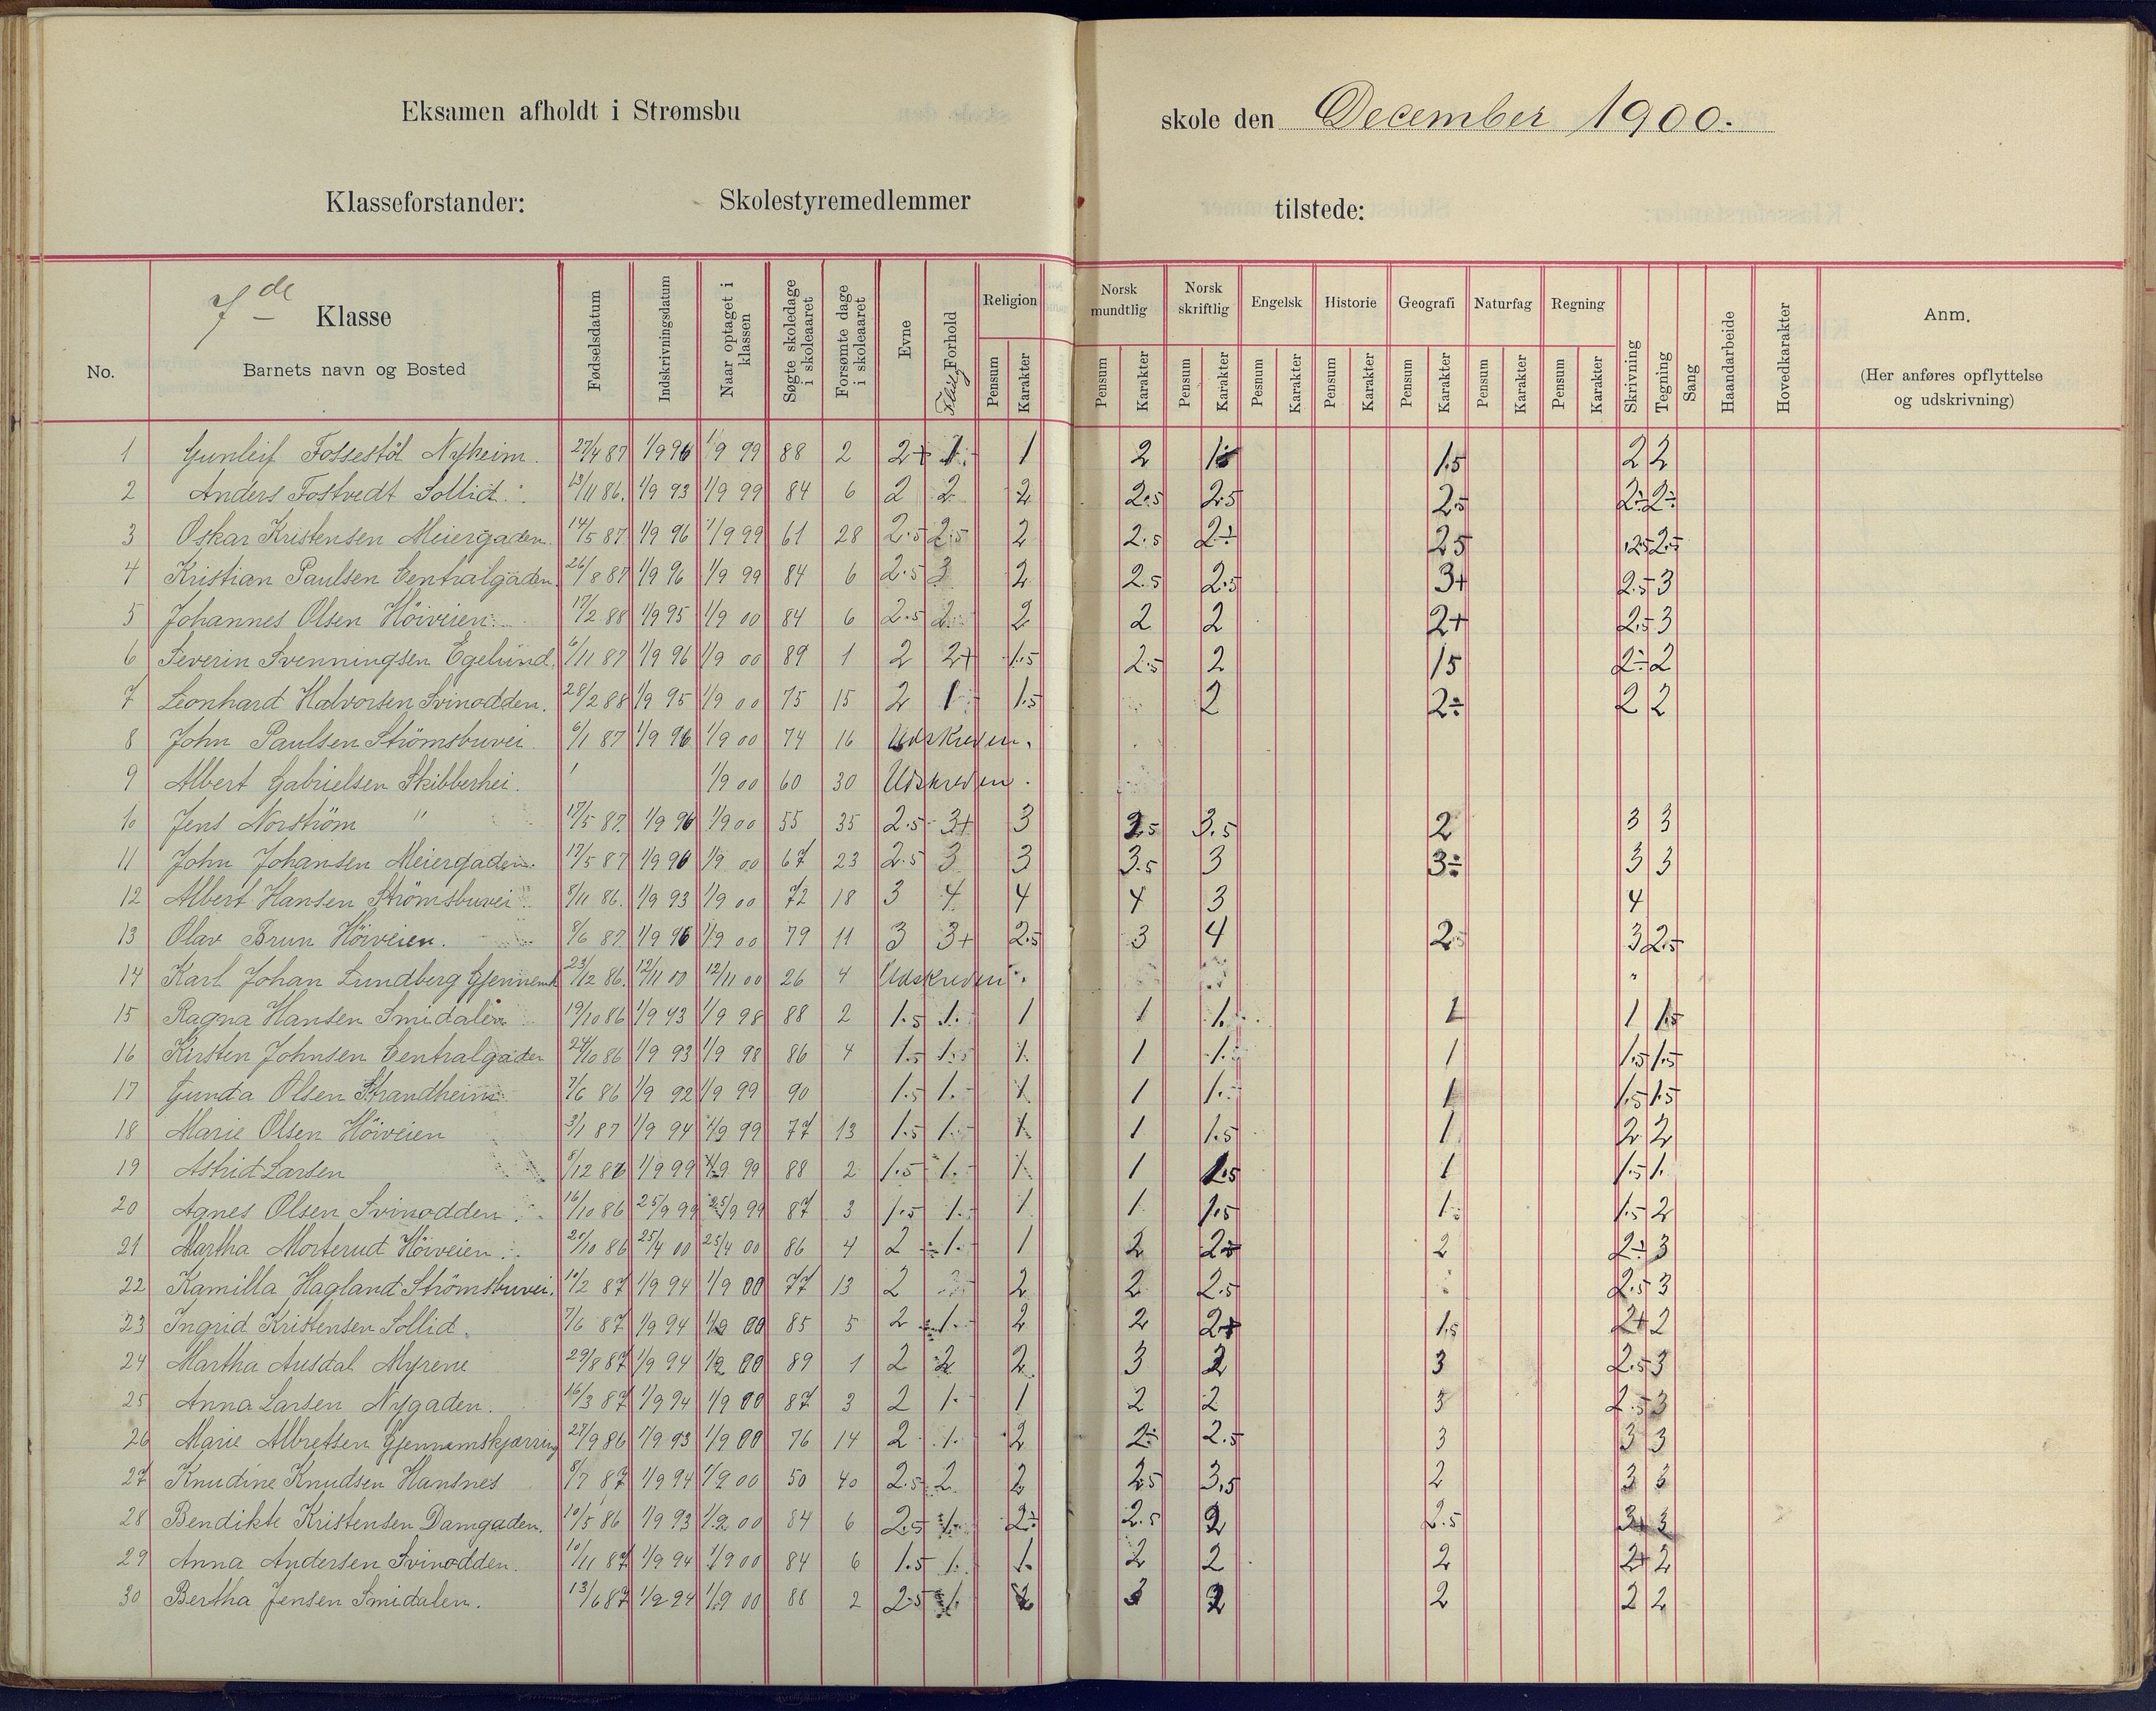 Eksamen afholdt i Strømsbu skole den December 1900.
Klasseforstander: Skolestyremedlemmer tilstede:
7de Klasse
No. Barnets navn og Bosted Fødselsdatum Indskrivningsdatum Naar optaget i klassen Søgte skoledage i skoleaaret Forsømte dage i skoleaaret Evne Flid Forhold Religion Pensum Karakter Norsk mundtlig Pensum Karakter Norsk skriftlig Pensum Karakter Engelsk Pesnum Karakter Historie Pensum Karakter Geografi Pensum Karakter Naturfag Pensum Karakter Regning Pensum Karakter Skrivning Tegning Sang Haandarbeide Hovedkarakter Anm. (Her anføres opflyttelse og udskrivning)
1 Gunleif Fossestöl Nyheim. 27/4 87 1/9 96 1/9 99 88 2 2+ 1 1 2 1.5 22
2 Anders Fostvedt Sollid. 13/11 86. 1/9 93 1/9 99 84 6 2 2 2 2.5 2.5 2.5 2÷ 2÷
3 Oskar Kristensen Meiergaden. 14/5 87 1/9 96 1/9 99 61 28 2.5 2.5 2 2.5 2÷ 25 2.5 2.5
4 Kristian Paulsen Centralgaden. 26/8 87 1/9 96 1/9 99 84 6 2.5 3 2 2.5 2.5 3+ 2.5 3
5 Johannes Olsen Höiveien. 17/2 88 1/9 95 1/9 00 84 6 2.5 2 2 2 2 2+ 2.5 3
6 Severin Svenningsen Egelund. 6/11 87 1/9 96 1/9 00 89 1 2 2+ 1.5 2.5 2 15 2÷ 2
7 Leonhard Halvorsen Svinodden. 28/2 88 1/9 95 1/9 00 75 15 2 1 1.5 2 2÷ 2 2
8 John Paulsen Strömsbuvei. 6/1 87 1/9 96 1/9 00 74 16 Udskreven.
9 Albert Gabrielsen Skibberhei. 1/9 00 60 30 Udskreven.
10 Jens Norström " 17/5 87. 1/9 96 1/9 00 55 35 2.5 3+ 3 2.5 3.5 2 3 3
11 John Johansen Meiergaden. 17/5 87 1/9 96 1/9 00 67 23 2.5 3 3 3.5 3 3÷ 3 3
12 Albert Hansen Strömsbuvei 8/11 86. 1/9 93 1/9 00 72 18 3 4 4 4 3 4
13 Olav Brun Höiveien. 8/6 87 1/9 96 1/9 00 79 11 3 3+ 2.5 3 4 2 3 2.5
14 Karl Johan Lundberg 23/12 86. 12/11 00 12/11 00 26 4 Udskreven.
15 Ragna Hansen Smidalen 19/10 86 1/9 93 1/9 98 88 2 1.5 1. 1 1 1. 1 1 1.5
16 Kirsten Johnsen Centralgaden 24/10 86 1/9 93 1/9 98 86 4 1.5 1.5 1. 1 1. 1 1.5 1.5
17 Gunda Olsen Strandheim 7/6 86 1/9 92 1/9 99 90 1.5 1. 1 1 1. 1 1.5 1.5
18 Marie Olsen Höiveien 3/1 87 1/9 94 1/9 99 77 13 1.5 1. 1 1 1.5 1 2 2
19 Astrid Larsen 8/12 86 1/9 99 1/9 99 88 2 1.5 1. 1 1 1.5 1 1.5 1.
20 Agnes Olsen Svinodden. 16/10 86 25/9 99 25/9 99 87 3 1.5 1. 1 1 1.5 1. 1.5 2
21 Martha Morterud Höiveien. 20/10 86 25/4 00 25/4 00 86 4 2 1. 1 2 2÷ 2 2÷ 3
22 Kamilla Hagland Strömsbuvei. 10/2 87 1/9 94 1/9 00 77 13 2 2 2 2.5 2.5 3
23 Ingrid Kristensen Sollid. 7/6 87 1/9 94 1/9 00 85 5 2 1. 2 2 2+ 1.5 2+ 2
24 Martha Ausdal Myrene 29/8 87 1/9 94 1/9 00 89 1 2 2 2 3 2 3 2.5 3
25 Anna Larsen Nygaden. 16/3 87 1/9 94 1/9 00 87 3 2 1. 1 2 2 3 2.5 3
26 Marie Albretsen Gjennemskjæring 27/9 86 1/9 93 1/9 00 76 14 2 1. 2 2÷ 2.5 3 3 3
27 Knudine Knudsen Hansnes 8/7 87 1/9 94 1/9 00 50 40 2.5 2 2 2.5 3.5 2 3 3
28 Bendikte Kristensen Damgaden. 10/5 86 1/9 93 1/9 00 84 6 2.5 1. 2÷ 2.5 2 2.5 3+ 3
29 Anna Andersen Svinodden. 10/11 87 1/9 94 1/9 00 84 6 1.5 1. 1. 2 2 2 2+ 2
30 Bertha Jensen Smidalen. 13/6 87 1/9 94 1/9 00 88 2 2.5 1. 2 3 2 2 2 2